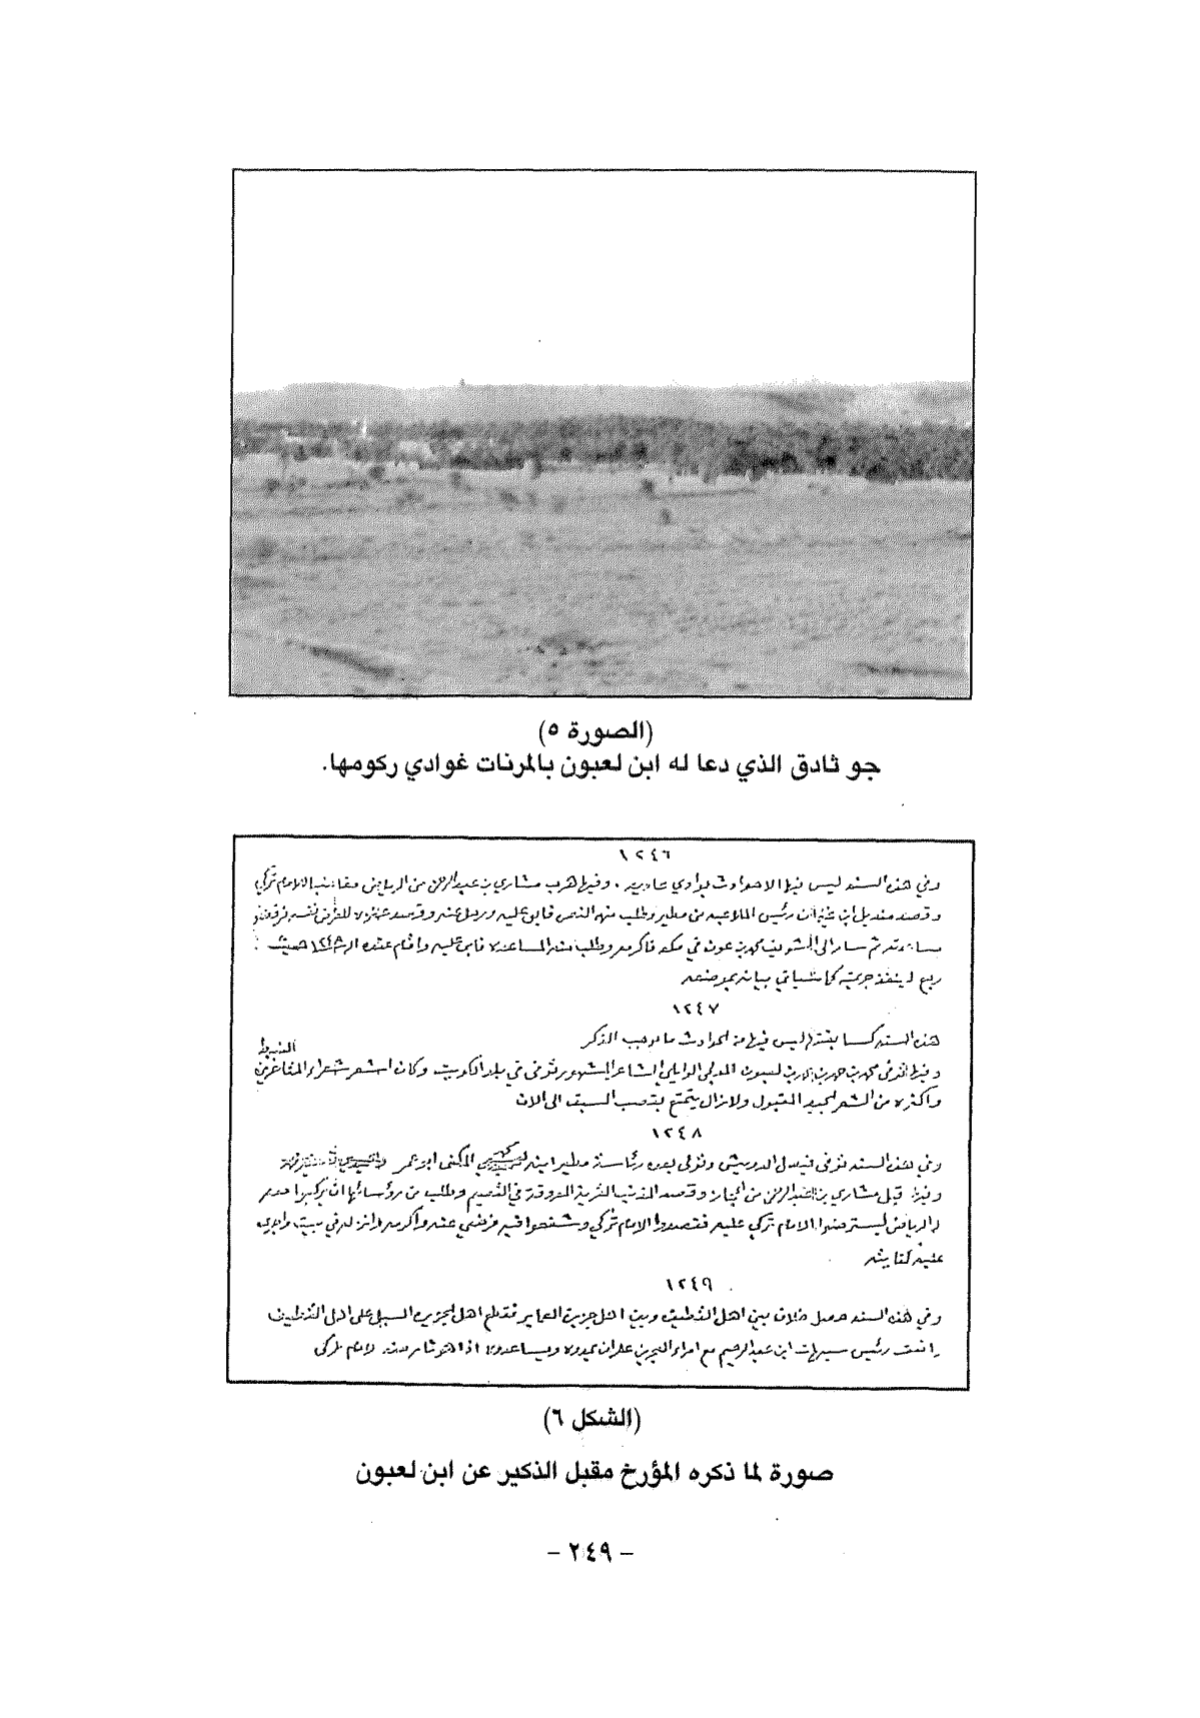 (الصورة ٥)
جو ثادق الذي دعا له ابن لعبون بالمرنات غوادي ركومها.
١٢٤٦
وفي هذه السنه ليس فيها الا حوادث بوادي عاديه . وفيها هرب مشاري بن عبدالرحمن من الرياض مغاضبا للامام تركي
وقصد منديل ابن غنيمان رئيس الملاعبه من مطير وطلب منه النصر فابى عليه ورحل عنه وقصد عنزه
ثم سار الى الشريف محمد بن عون في مكه فاكرمه وطلب منه المساعده فابى عليه واقام عنده الى ١٢٤٨ حيث
رجع لينفذ جريمته كما سيأتي بيانه بموضعه
١٢٤٧
هذه السنه كسابقتها ليس فيها من الحوادث ما يوجب الذكر
وفيها توفى محمد بن حمد بن لعبون المدلجي الوايلي الشاعر المشهور توفى في بلد الكويت وكان اشعر شعراء
واكثره من الشعر الجيد المقبول ولا زال يتمتع بقصب السبق الى الان
١٢٤٨
وفي هذه السنه توفى فيصل الدويش وتولى بعده رئاسة مطير ابنه المكنى ابو عمر
وفيها قبل مشاري بن عبدالرحمن من الحجاز وقصد المذنب القرية المعروفة في القصيم وطلب من رؤسائها ان يركبوا معه
الرياض ليسترضوا الامام تركي عليه فقصدوا الامام تركي وشفعوا فيه فرضي عنه واكرمه وانزله في بيت واجرى
عليه كفايته
١٢٤٩
وفي هذه السنه حصل خلاف بين اهل القطيف وبين اهل جزيرة العماير فقطع اهل الجزيره السبل على اهل القطيف
رئيس سيهات ابن عبدالرحيم مع امراء البحرين على ان يمدوه ويساعدوه اذا هو الامام تركي
(الشكل ٦)
صورة لما ذكره المؤرخ مقبل الذكير عن ابن لعبون
– ٢٤٩ –